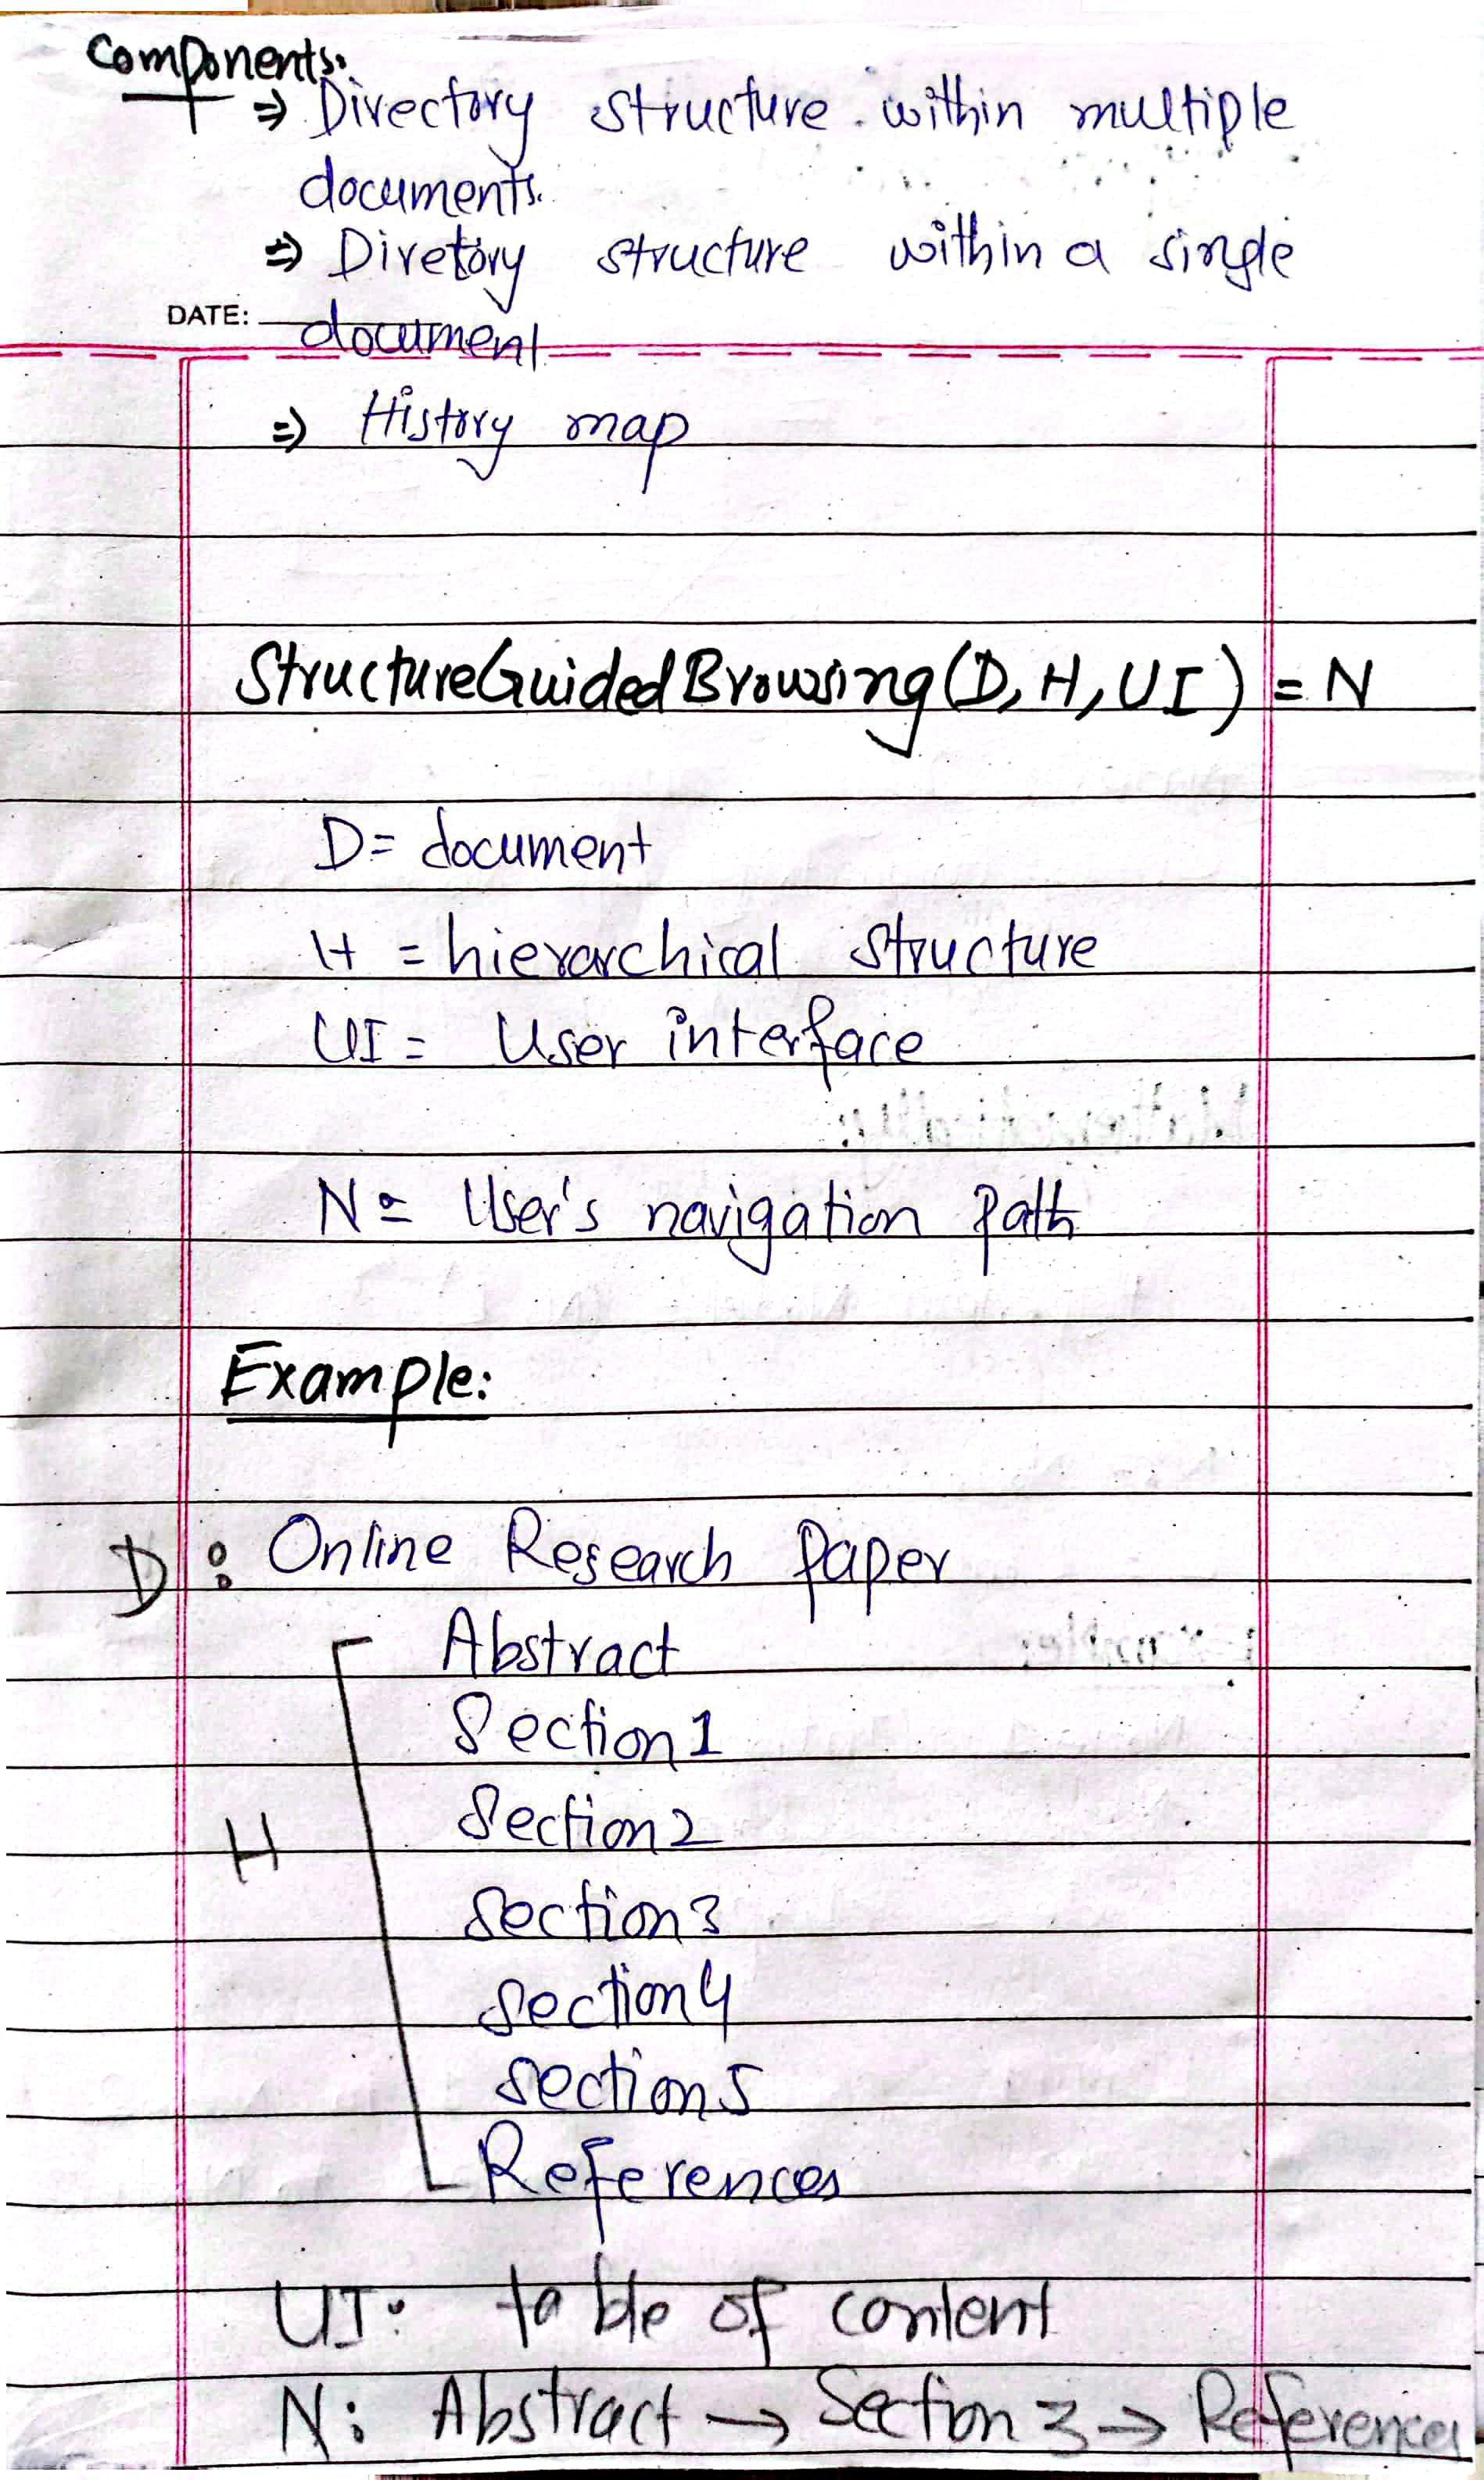 Components:
⇒ Directory structure within multiple
documents.
⇒ Diretory structure within a single
DATE: document
⇒ History map
StructureGuidedBrowsing(D, H, UI) = N
D= document
H = hierarchical structure
UI = User interface
N = User's navigation path
Example:
D: Online Research Paper
Abstract
Section 1
Section 2
H
Section 3
Section 4
Section 5
References
UI: table of content
N: Abstract → Section 3 → References